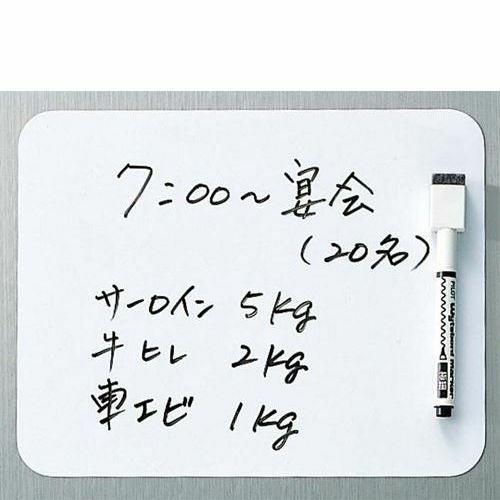 7:00～宴会
(20名)
サーロイン 5kg
牛ヒレ 2kg
車エビ 1kg
PILOT